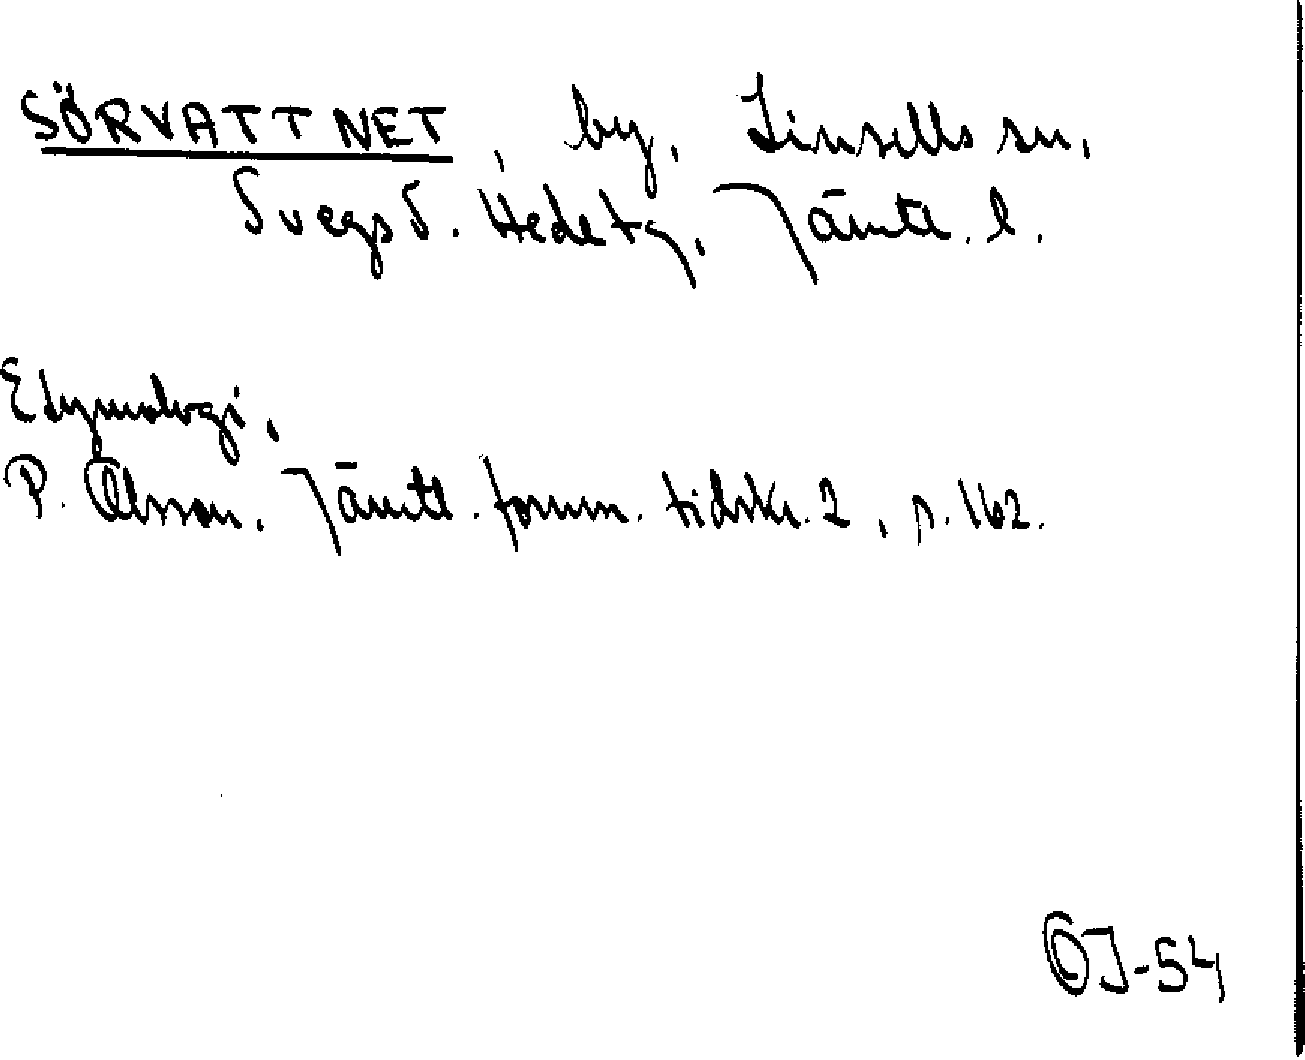 SÖRVATTNET, by, Linsells sn,
Svegs d. Hedetg, Jämtl. l.
Etymologi,
P. Olsson. Jämtl. fornm. tidskr. 2, p. 162.
OJ-54